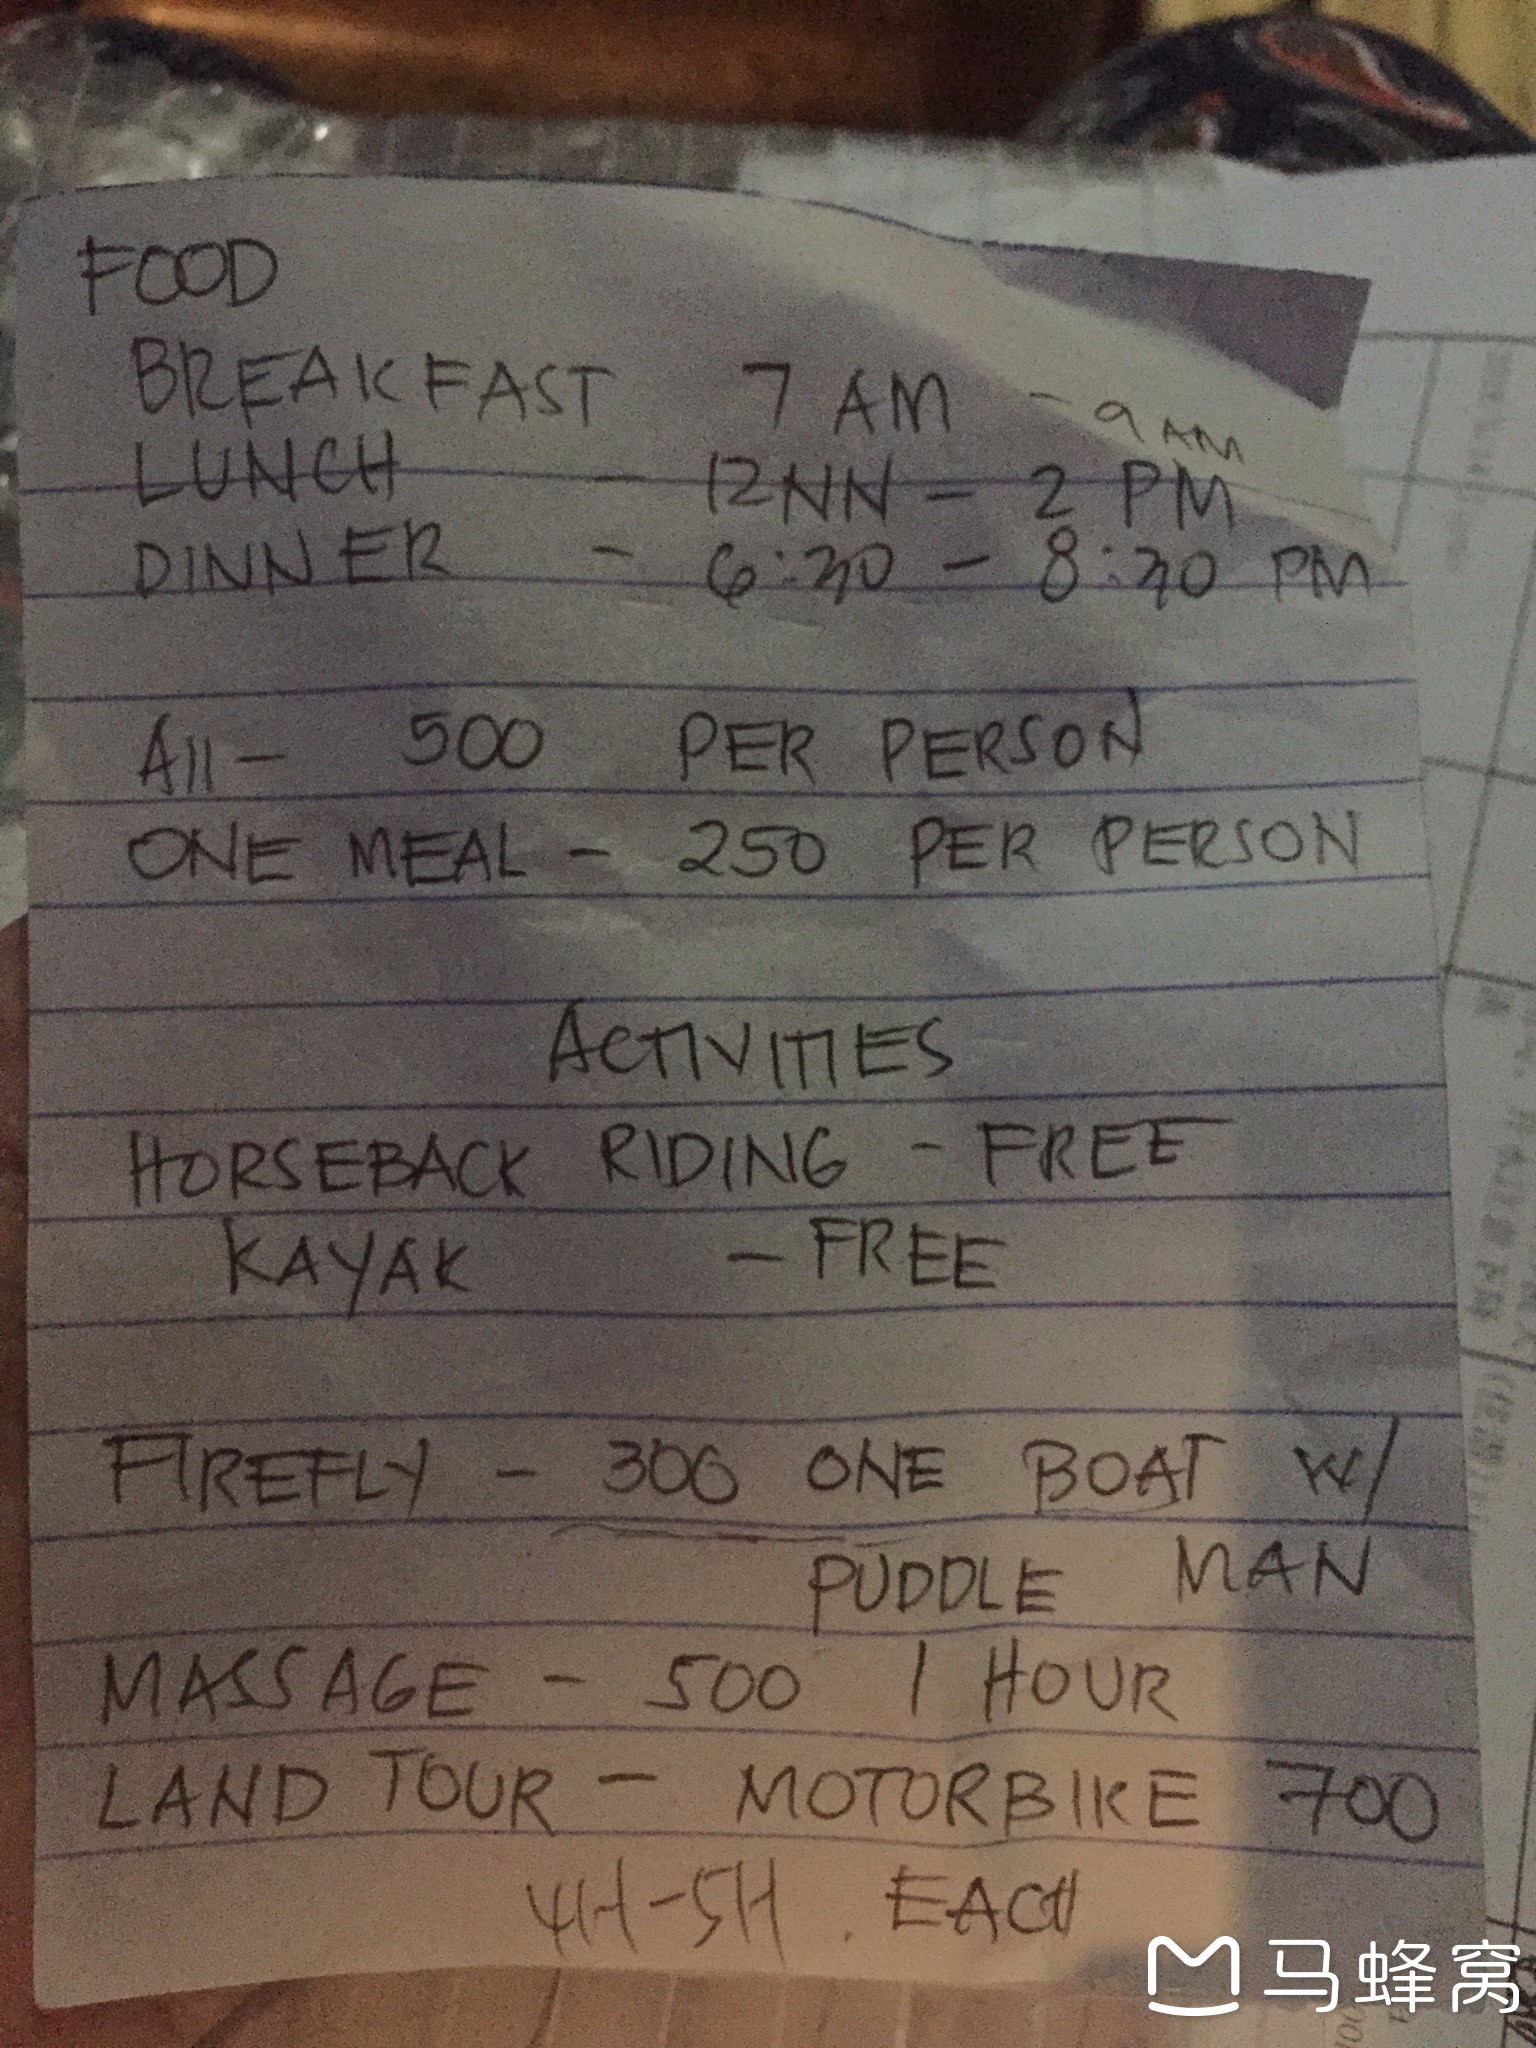 FOOD
BREAKFAST 7 AM - 9 AM
LUNCH - 12NN - 2 PM
DINNER - 6:30 - 8:30 PM
All - 500 PER PERSON
ONE MEAL - 250 PER PERSON
ACTIVITIES
HORSEBACK RIDING - FREE
KAYAK - FREE
FIREFLY - 300 ONE BOAT W/
PUDDLE MAN
MASSAGE - 500 1 HOUR
LAND TOUR - MOTORBIKE 700
4H-5H. EACH
马蜂窝